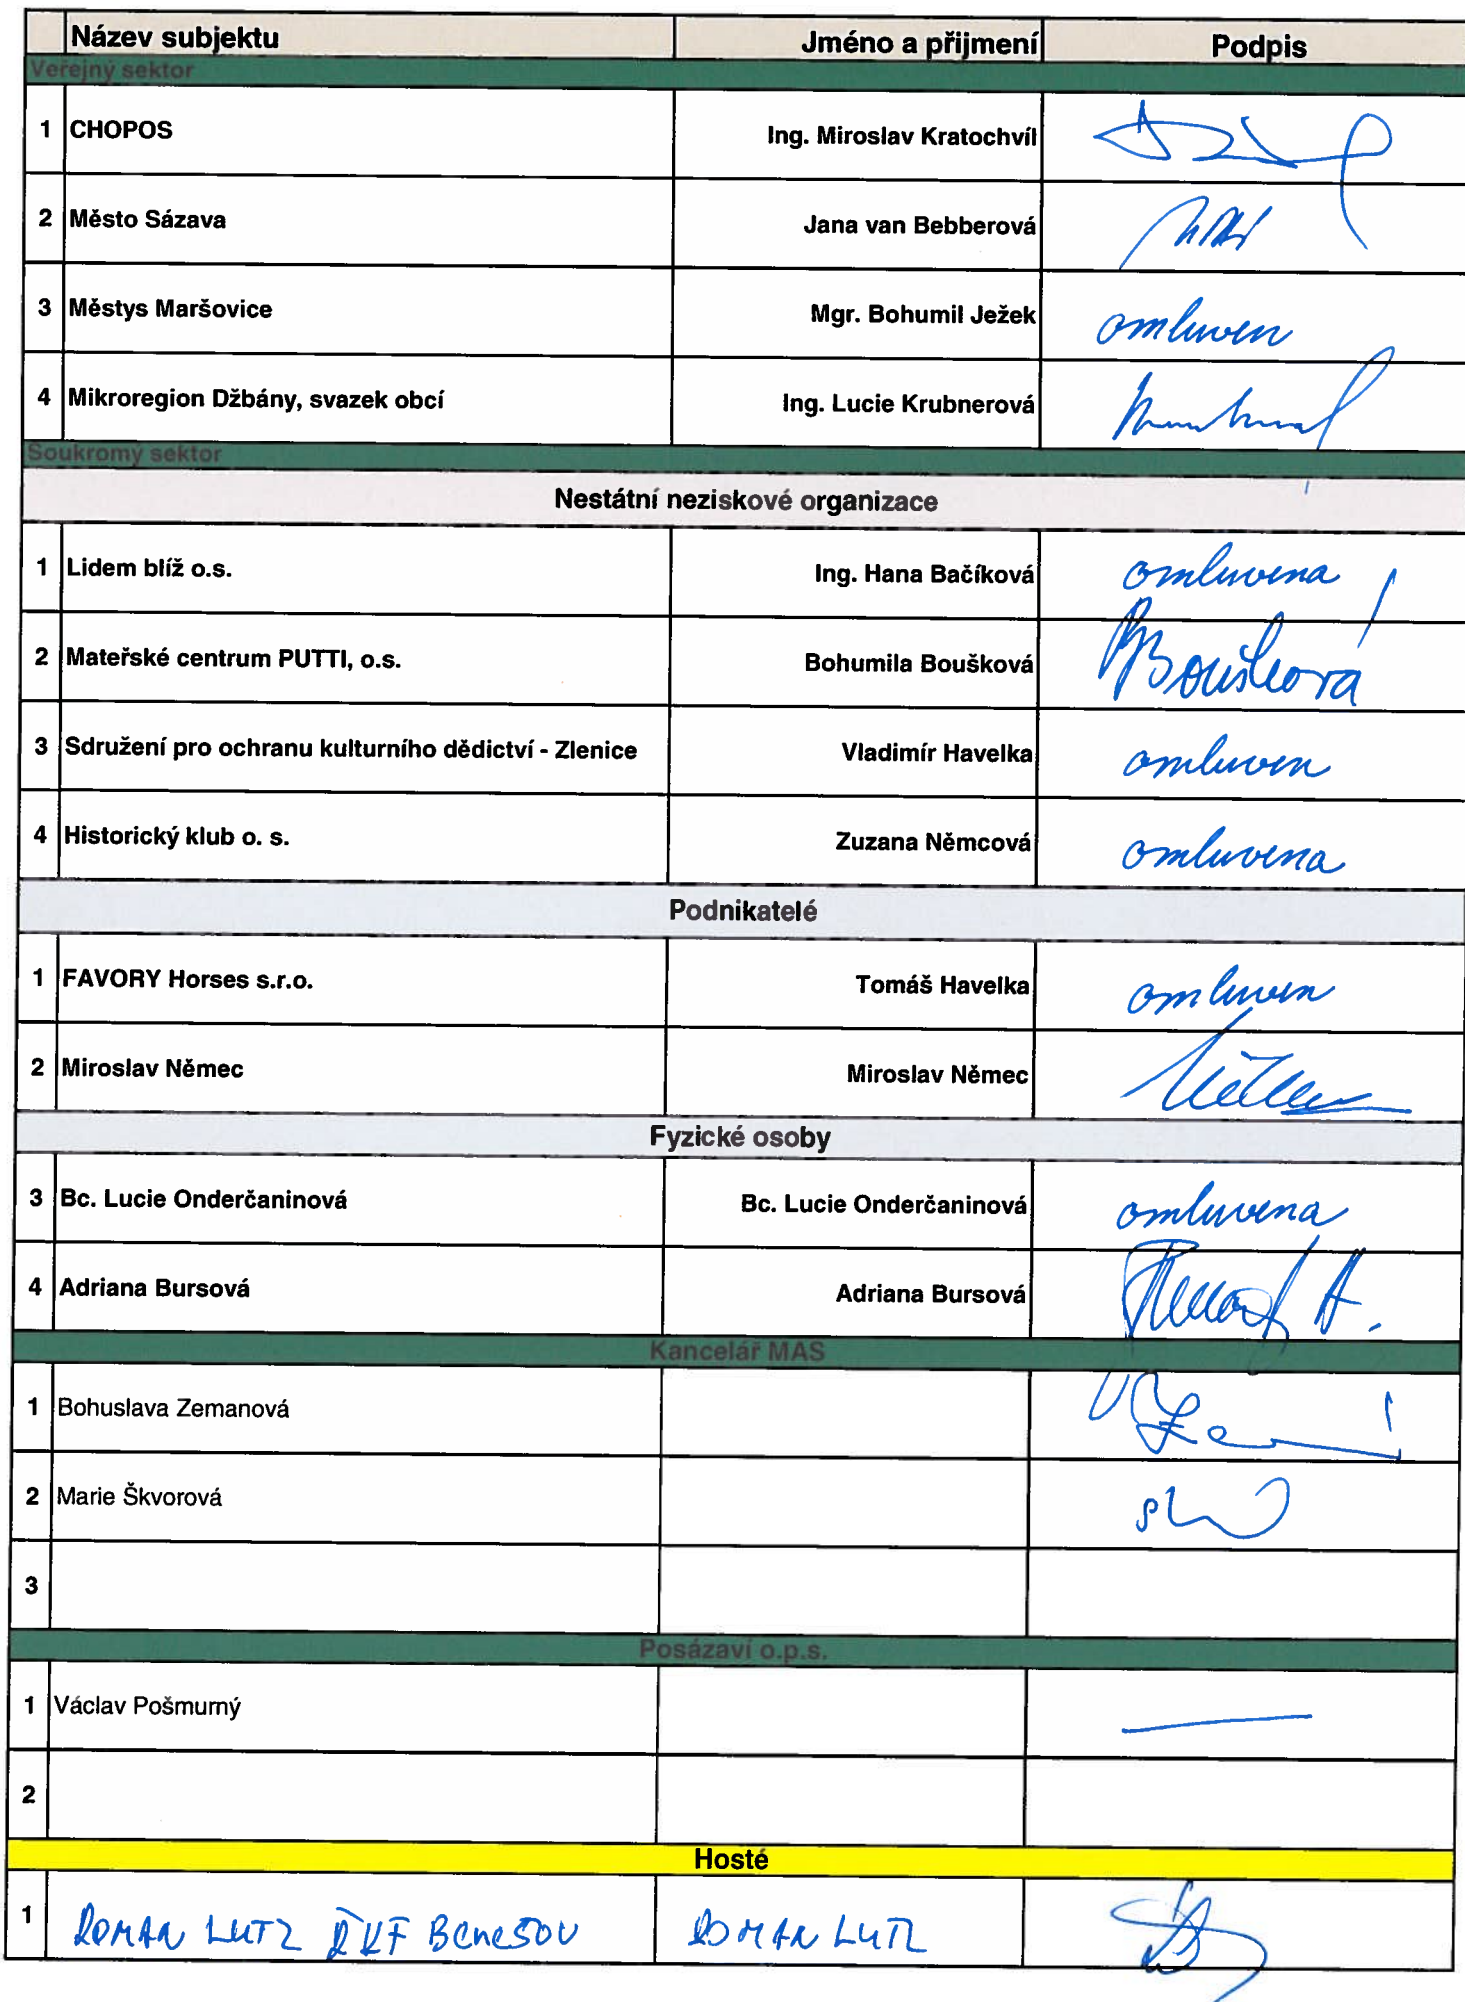 Název subjektu Jméno a přijmení Podpis
Veřejný sektor
1 CHOPOS Ing. Miroslav Kratochvíl
2 Město Sázava Jana van Bebberová
3 Městys Maršovice Mgr. Bohumil Ježek omluven
4 Mikroregion Džbány, svazek obcí Ing. Lucie Krubnerová
Soukromý sektor
Nestátní neziskové organizace
1 Lidem blíž o.s. Ing. Hana Bačíková omluvena
2 Mateřské centrum PUTTI, o.s. Bohumila Boušková Boušková
3 Sdružení pro ochranu kulturního dědictví - Zlenice Vladimír Havelka omluven
4 Historický klub o. s. Zuzana Němcová omluvena
Podnikatelé
1 FAVORY Horses s.r.o. Tomáš Havelka omluven
2 Miroslav Němec Miroslav Němec
Fyzické osoby
3 Bc. Lucie Onderčaninová Bc. Lucie Onderčaninová omluvena
4 Adriana Bursová Adriana Bursová
Kancelář MAS
1 Bohuslava Zemanová
2 Marie Škvorová
3
Posázaví o.p.s.
1 Václav Pošmurný
2
Hosté
1 ROMAN LUTZ BENESOV ROMAN LUTZ